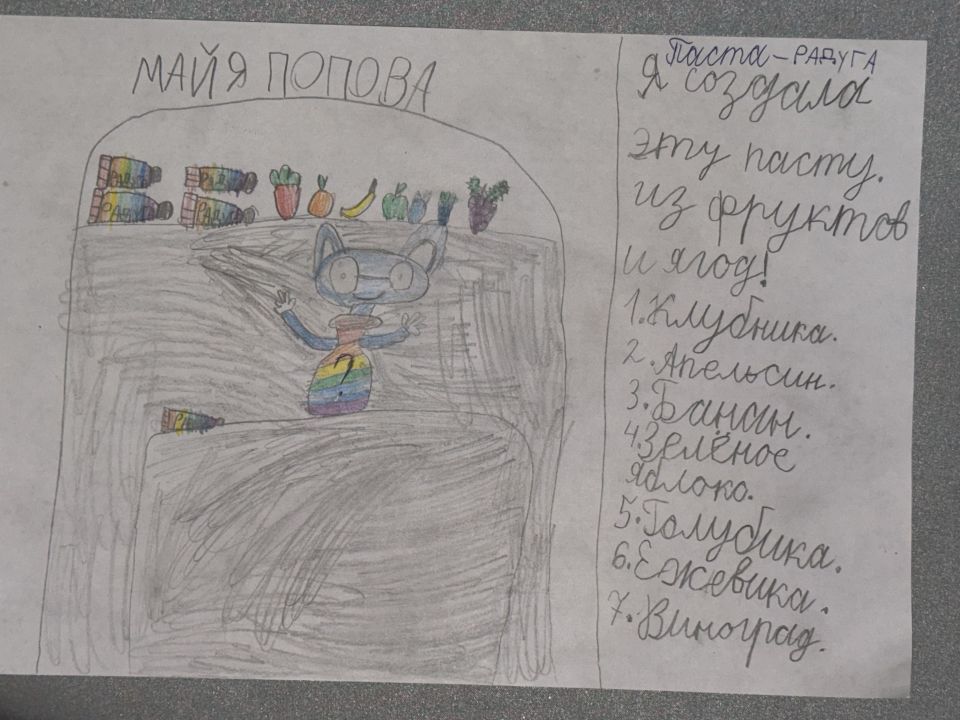 МАЙЯ ПОПОВА
РАДУГА
РАДУГА
РАДУГА
РАДУГА
?
Паста - РАДУГА
Я создала
эту пасту.
из фруктов
и ягод!
1. Клубника.
2. Апельсин.
3. Бананы.
4. Зелёное
яблоко.
5. Голубика.
6. Ежевика.
7. Виноград.